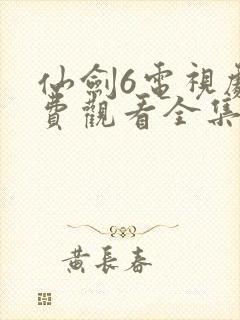 仙劍6電視劇
費觀看全集
黃長春